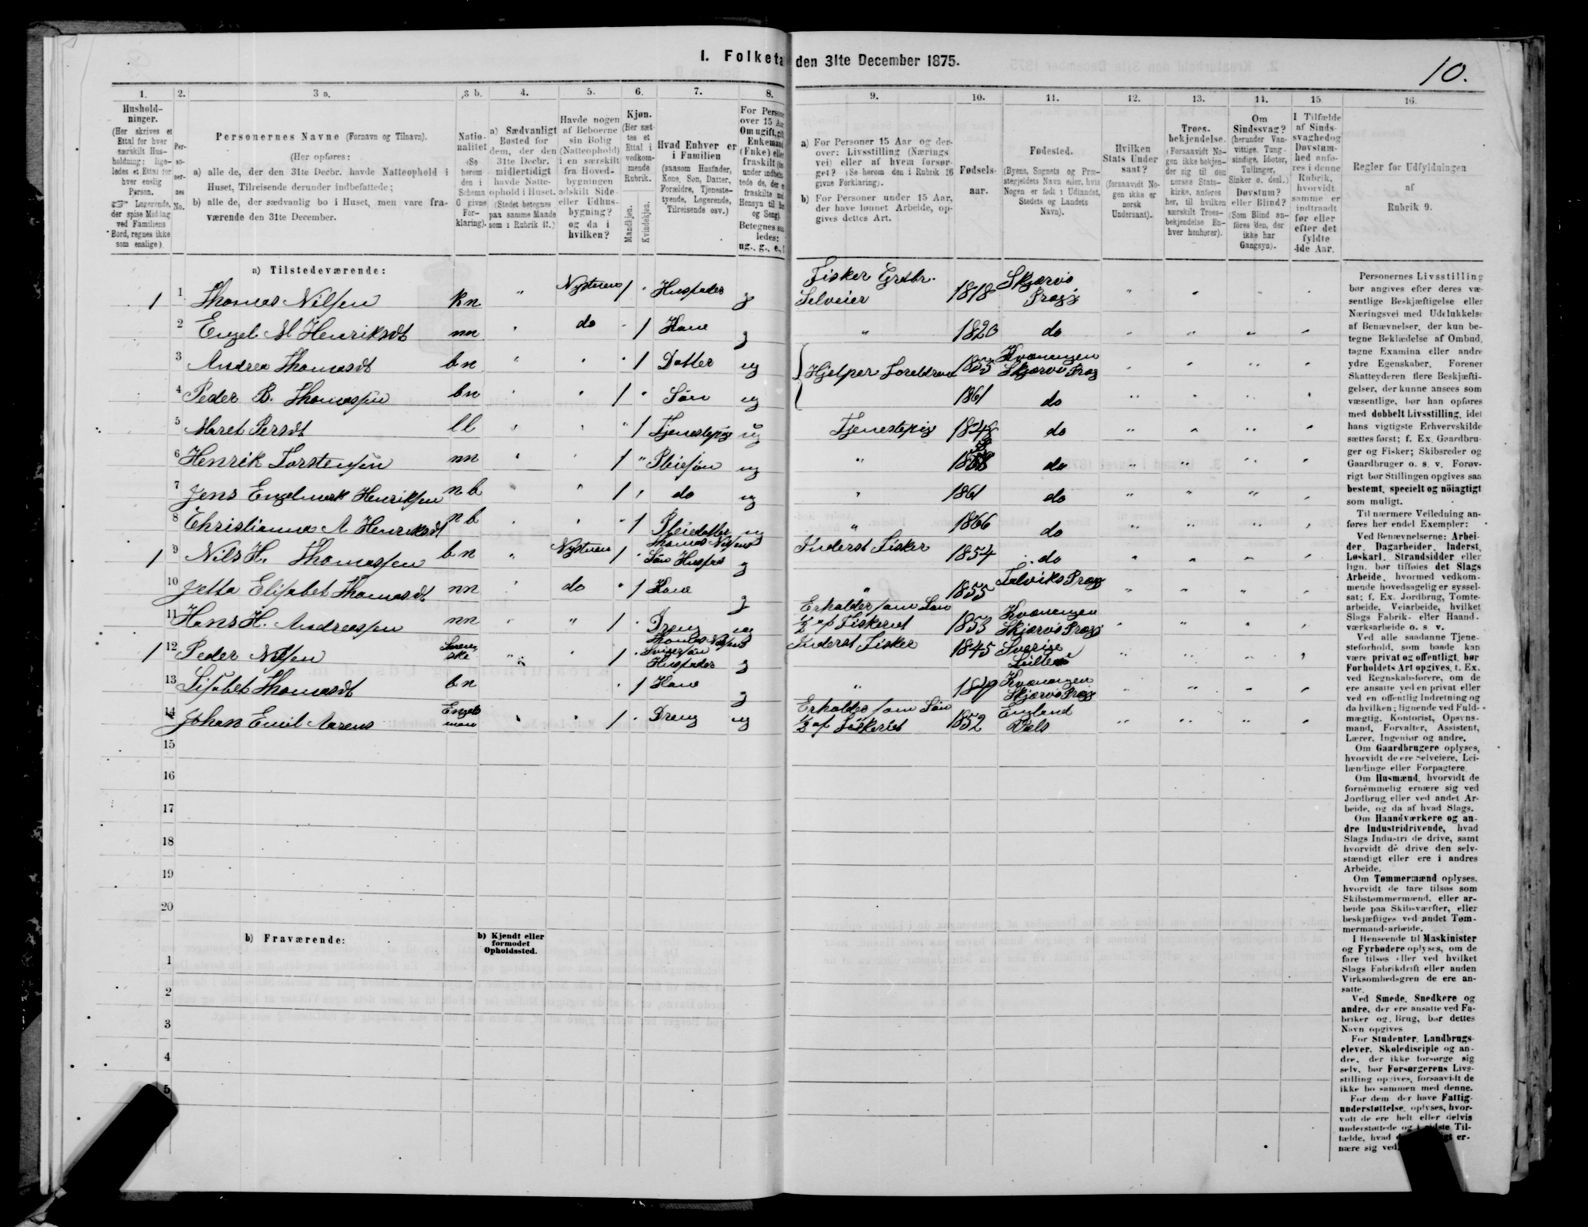 I. Folketæ
den 31te December 1875.
10.
1.
2.
3 a.
3 b.
4.
5.
6.
7.
8.
9.
10.
11.
12.
13.
14.
15
16.
Hushold-
ninger.
(Her skrives et
Ettal for hver
særskilt Hus-
holdning; lige-
ledes et Ettal for
hver enslig
Person.
Logerende,
der spise Middag
ved Familiens
Bord, regnes ikke
som enslige).
Per-
so-
ner-
nes
No.
Personernes Navne (Fornavn og Tilnavn).
(Her opføres:
a) alle de, der den 31te Decbr. havde Natteophold i
Huset, Tilreisende derunder indbefattede;
b) alle de, der sædvanlig bo i Huset, men vare fra-
værende den 31te December.
Natio-
nalitet
(Se
herom
den i
Schema
6 givne
For-
klaring).
a) Sædvanligt
Bosted for
dem, der den
31te Decbr.
midlertidigt
havde Natte-
ophold i Huset.
(Stedet betegnes
paa samme Maade
som i Rubrik 11.)
Havde nogen
af Beboerne
sin Bolig
(Natteophold)
i en særskilt
fra Hoved-
bygningen
adskilt Side
eller Udhus-
bygning?
og da i
hvilken?
Kjøn.
(Her sæt-
tes et
Ettal i
vedkom-
mende
Rubrik.
Mandkjøn.
Kvindekjøn.
Hvad Enhver er
i Familien
(saasom Husfader,
Kone, Søn, Datter,
Forældre, Tjeneste-
tyende, Logerende,
Tilreisende osv.)
For Persone
over 15 Aa
Om ugift, gif
Enkeman
(Enke) elle
fraskilt
ug., g., e., f
a) For Personer 15 Aar og der-
over: Livsstilling (Nærings
vei) eller af hvem forsør-
get? (Se herom den i Rubrik 16
givne Forklaring).
b) For Personer under 15 Aar,
der have lønnet Arbeide, op-
gives dettes Art.
Fødsels-
aar.
Fødested.
(Byens, Sognets og Præ-
stegjeldets Navn eller, hvis
Nogen er født i Udlandet,
Stedets og Landets
Navn).
Hvilken
Stats Under
saat?
(forsaavidt No-
gen ikke er
norsk
Undersaat).
Troes-
bekjendelse.
(Forsaavidt No-
gen ikke bekjen-
der sig til den
norske Stats-
kirke, anføres
her, til hvilken
særskilt Troes-
bekjendelse En-
hver henhører).
Om
Sindssvag?
(herunder Van-
vittige, Tung-
sindige, Idioter,
Tullinger,
Sinker o. desl.)
Døvstum?
eller Blind?
(Som Blind an-
føres den, der
ikke har
Gangsyn).
I Tilfælde
af Sinds-
svaghed og
Døvstum-
hed anfø-
res i denne
Rubrik,
hvorvidt
samme er
indtraadt
før eller
efter det
fyldte
4de Aar.
Regler for Udfyldningen
af
Rubrik 9.
a) Tilstedeværende:
1 1 Thomas Nilsen kn " Nystuen 1 " Husfader g Fisker Grdbr. Selveier 1818 Skjærvø Præg
2 Engel M Henriksdt nn " do " 1 Kone g " 1820 do
3 Andrea Thomasdt bn " " " 1 Datter ug Hjelper Foreldrene 1855 Kvænangen Skjærvø Præg
4 Peder B. Thomassen bn " " 1 " Søn ug 1861 do
5 Maret Persdt ll " " " 1 Tjenestepig ug Tjenestepig 1848 do
6 Henrik Torstensen nn 1 " Pleiesøn ug " do
7 Jens Engelmark Henriksen nb 1 " do ug " 1861 do
8 Christianna A Henriksdt nb " 1 Pleiedatter ug " 1866 do
1 9 Nils H. Thomassen bn " Nystuen 1 " Thomas Nilsens Søn Husfar g Inderst Fisker 1854 do
10 Jetta Elisabet Thomasdt nn " do " 1 Kone g " 1855 Talviks Præg
11 Hans H. Andreassen nn " " 1 " Dreng ug Erholder som Løn ½ af Fiskeriet 1853 Kvænangen Skjærvø Præg
1 12 Peder Nilsen Svenske 1 " Thomas Nilsens Svigersøn Husfader g Inderst Fisker 1845 Sverige
13 Lisabet Thomasdt bn " 1 Kone g " Kvænangen Skjærvø Præg
14 Johan Emil Aarens Engelsman " " 1 " Dreng ug Erholder som Løn ½ af Fiskeriet 1852 England Vals
15
16
17
18
19
20
b) Fraværende:
b) Kjendt eller
formodet
Opholdssted.
1
2
3
4
5
Personernes Livsstilling
bør angives efter deres væ-
sentlige Beskjæftigelse eller
Næringsvei med Udelukkelse
af Benævnelser, der kun be-
tegne Beklædelse af Ombud,
tagne Examina eller andre
ydre Egenskaber. Forener
Skatteyderen flere Beskjæfti-
gelser, der kunne ansees som
væsentlige, bør han opføres
med dobbelt Livsstilling, idet
hans vigtigste Erhvervskilde
sættes først; f. Ex. Gaardbru-
ger og Fisker; Skibsreder og
Gaardbruger o. s. v. Forøv-
rigt bør Stillingen opgives saa
bestemt, specielt og nöiagtigt
som muligt.
Til nærmere Veiledning an-
føres her endel Exempler:
Ved Benævnelserne: Arbei-
der, Dagarbeider, Inderst,
Løskarl, Strandsidder eller
lign. bør tilføies det Slags
Arbeide, hvormed vedkom-
mende hovedsagelig er syssel-
sat; f. Ex. Jordbrug, Tomte-
arbeide, Veiarbeide, hvilket
Slags Fabrik- eller Haand-
værksarbeide o. s. v.
Ved alle saadanne Tjene-
steforhold, som baade kan
være privat og offentligt, bør
Forholdets Art opgives, t. Ex.
ved Regnskabsførere, om de
ere ansatte ved en privat eller
ved en offentlig Indretning og
da hvilken; lignende ved Fuld-
mægtig, Kontorist, Opsyns-
mand, Forvalter, Assistent,
Lærer, Ingeniør og andre.
Om Gaardbrugere oplyses,
hvorvidt de ere Selveiere, Lei-
lændinge eller Forpagtere.
Om Husmænd, hvorvidt de
fornemmelig ernære sig ved
Jordbrug eller ved andet Ar-
beide, og da af hvad Slags.
Om Haandværkere og an-
dre Industridrivende, hvad
Slags Industri de drive, samt
hvorvidt de drive den selv-
stændigt eller ere i andres
Arbeide.
Om Tømmermænd oplyses,
hvorvidt de fare tilsøs som
Skibstømmermænd, eller ar-
beide paa Skibsværfter, eller
beskjæftiges ved andet Tøm-
mermandsarbeide.
I Henseende til Maskinister
og Fyrbødere oplyses, om de
fare tilsøs eller ved hvilket
Slags Fabrikdrift eller anden
Virksomhedsgren de ere an-
satte.
Ved Smede, Snedkere og
andre, der ere ansatte ved Fa-
briker og Brug, bør dettes
Navn opgives
For Studenter, Landbrugs-
elever, Skoledisciple og an-
dre, der ikke forsørge sig
selv, bør Forsørgerens Livs-
stilling opgives, forsaavidt de
ikke bo sammen med denne.
For dem der have Fattig-
understøttelse, oplyses, hvor-
vidt de ere helt eller delvis
understøttede og i sidste Til-
fælde, hvad
nære sig ved.